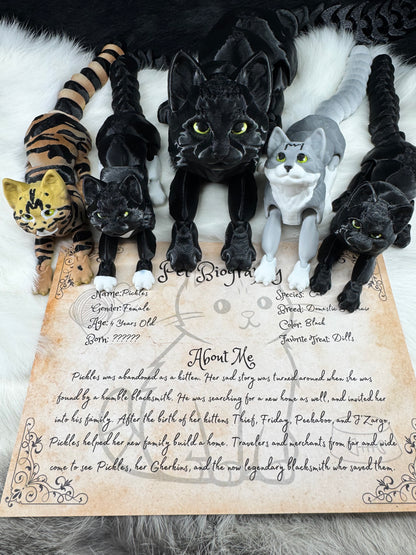 Pet Biography
Name: Pickles
Gender: Female
Age: 4 Years Old
Born: ??????
Species:
Breed: Domestic
Color: Black
Favorite Treat: Dills
About Me
Pickles was abandoned as a kitten. Her sad story was turned around when she was
found by a humble blacksmith. He was searching for a new home as well, and invited her
into his family. After the birth of her kittens Thief, Friday, Peekaboo, and J'Zargo,
Pickles helped her new family build a home. Travelers and merchants from far and wide
come to see Pickles, her Gherkins, and the now legendary blacksmith who saved them.